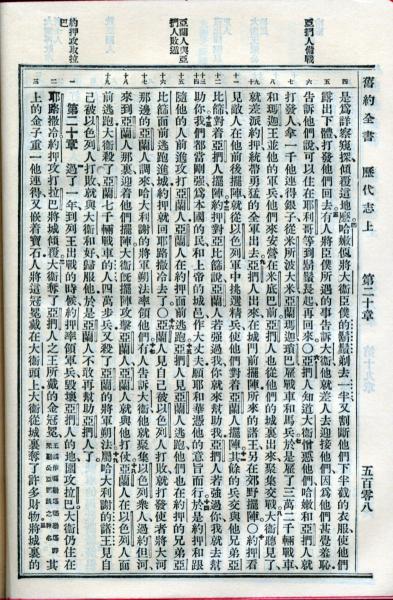 亞捫人備戰
亞蘭人與亞捫人敗逃
約押攻取拉巴
舊約全書 歷代志上 第二十章 五百零八
是爲詳察窺探傾覆這地麼哈嫩便將大衛臣僕的鬍鬚剃去一半又割斷他們下半截的衣服使他們
露出下體打發他們回去有人將臣僕所遇的事告訴大衛他就差人去迎接他們因爲他們甚覺羞恥
告訴他們說可以住在耶利哥等到鬍鬚長起再回來○亞捫人知道大衛憎惡他們哈嫩和亞捫人就
打發人拿一千他連得銀子從米所波大米亞蘭瑪迦瑣巴雇戰車和馬兵於是雇了三萬二千輛戰車
和瑪迦王並他的軍兵他們來安營在米底巴前亞捫人也從他們的城裏出來聚集交戰大衛聽見了
就差派約押統帶勇猛的全軍出去亞捫人出來在城門前擺陣所來的諸王另在郊野擺陣○約押看
見敵人在他前後擺陣就從以色列軍中挑選精兵使他們對着亞蘭人擺陣其餘的兵交與他兄弟亞
比篩對着亞捫人擺陣約押對亞比篩說亞蘭人若強過我你就來幫助我亞捫人若強過你我就去幫
助你我們都當剛強爲本國的民和上帝的城邑作大丈夫願耶和華憑他的意旨而行於是約押和跟
隨他的人前進攻打亞蘭人亞蘭人在約押面前逃跑亞捫人見亞蘭人逃跑他們也在約押的兄弟亞
比篩面前逃跑進城約押就回耶路撒冷去了○亞蘭人見自己被以色列人打敗就打發使者將大河
那邊的亞蘭人調來哈大利謝的將軍朔法率領他們有人告訴大衛他就聚集以色列衆人過約但河
來到亞蘭人那裏迎着他們擺陣大衛旣擺陣攻擊亞蘭人亞蘭人就與他打仗亞蘭人在以色列人面
前逃跑大衛殺了亞蘭七千輛戰車的人四萬步兵又殺了亞蘭的將軍朔法屬哈大利謝的諸王見自
己被以色列人打敗就與大衛和好歸服他於是亞蘭人不敢再幫助亞捫人了
第二十章 過了一年到列王出戰的時候約押率領軍兵毀壞亞捫人的地圍攻拉巴大衛仍住在
耶路撒冷約押攻打拉巴將城傾覆大衛奪了亞捫人之王所戴的金冠冕 其
上的金子重一他連得又嵌着寶石人將這冠冕戴在大衛頭上大衛從城裏奪了許多財物將城裏的